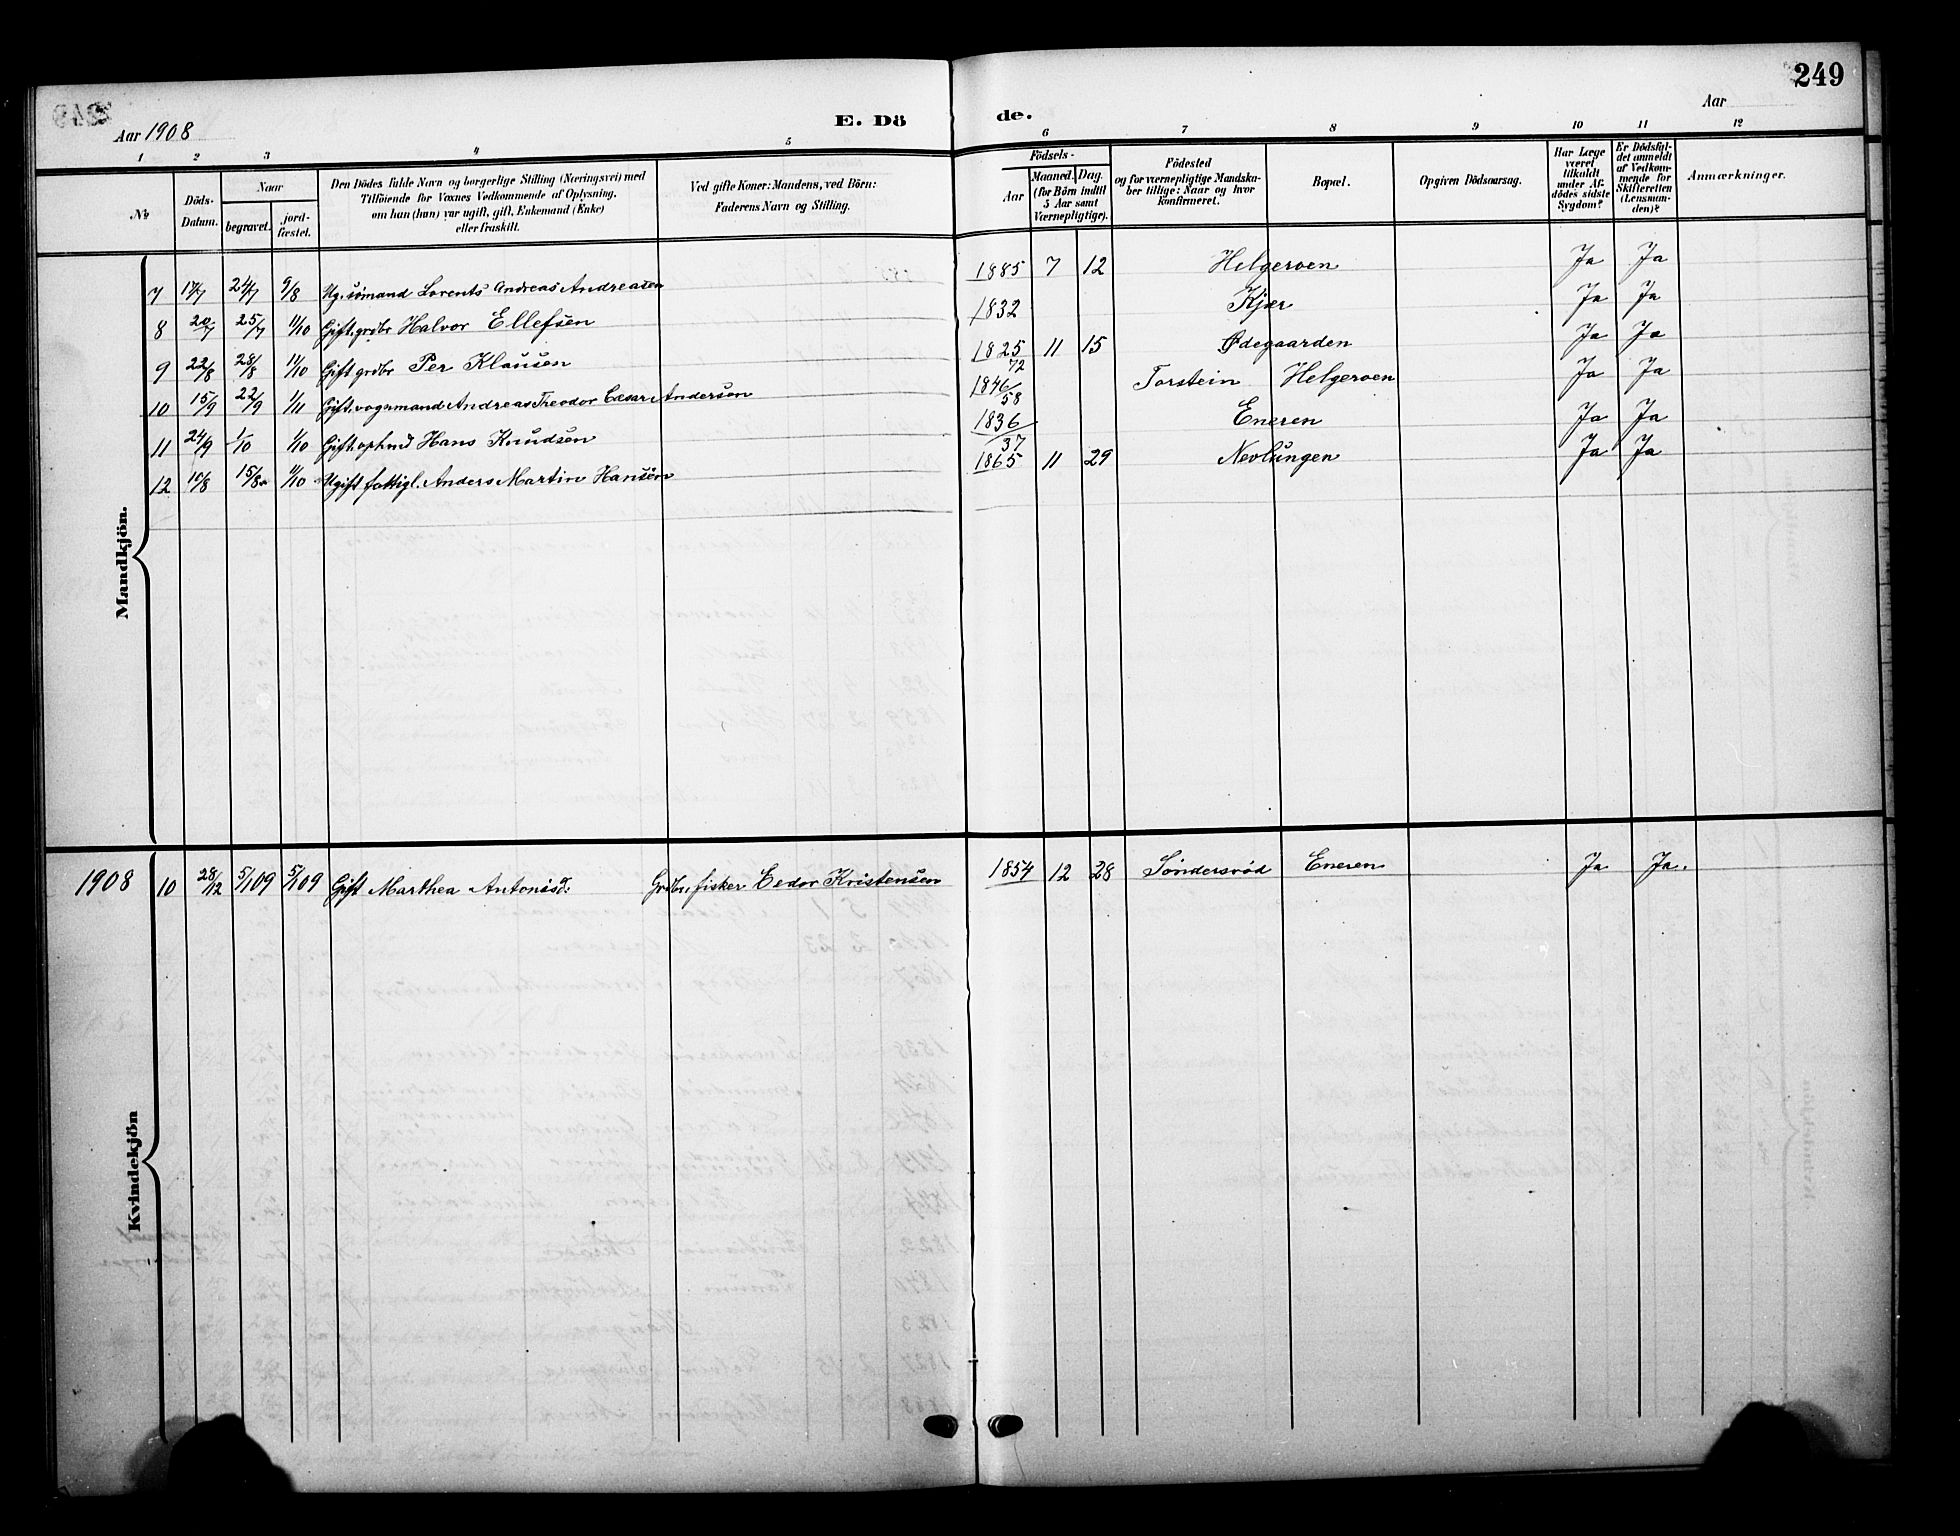 249
Aar 1908
E. Döde.
Aar
1 2 3 4 5 6 7 8 9 10 11 12
No
Döds-Datum.
Naar
begravet.
jord-fæstet.
Den Dödes fulde Navn og borgerlige Stilling (Næringsvei) med
Tilföiende for Voxnes Vedkommende af Oplysning,
om han (hun) var ugift, gift, Enkemand (Enke)
eller fraskilt.
Ved gifte Koner: Mandens, ved Börn:
Faderens Navn og Stilling.
Födsels-
Aar
Maaned. Dag.
(for Börn indtil
5 Aar samt
Værnepligtige).
Födested
og for værnepligtige Mandska-
ber tillige: Naar og hvor
konfirmeret.
Bopæl.
Opgiven Dödsaarsag.
Har Læge
været
tilkaldt
under Af-
dödes sidste
Sygdom?
Er Dödsfal-
det anmeldt
af Vedkom-
mende for
Skifteretten
(Lensman-
den)?
Anmærkninger.
Mandkjön.
7 17/7 24/7 9/8 Ug. sömand Lorents Andreas Andreasen 1885 7 12 Helgeroen Ja Ja
8 20/7 25/7 11/10 Gift. grdbr Halvor Ellefsen 1832 Kjær Ja Ja
9 22/8 28/8 11/10 Gift grdbr Per Klausen 1825 11 15 Ødegaarden Ja Ja
10 15/9 22/9 1/11 Gift. vognmand Andreas Theodor Cæsar Andersen 72 1846 Torstein Helgeroen Ja Ja
11 24/9 1/10 1/10 Gift. ophmd Hans Knudsen 58 1836 Eneren Ja Ja
12 10/8 15/8 11/10 Ugift fattigl. Anders Martin Hansen 37 1865 11 29 Nevlungen Ja Ja
Kvindekjön
1908 10 28/12 5/1 09 5/1 09 Gift Marthea Antonisd. Grdbr. fisker Eedor Kristensen 1854 12 28 Söndersröd Eneren Ja Ja.